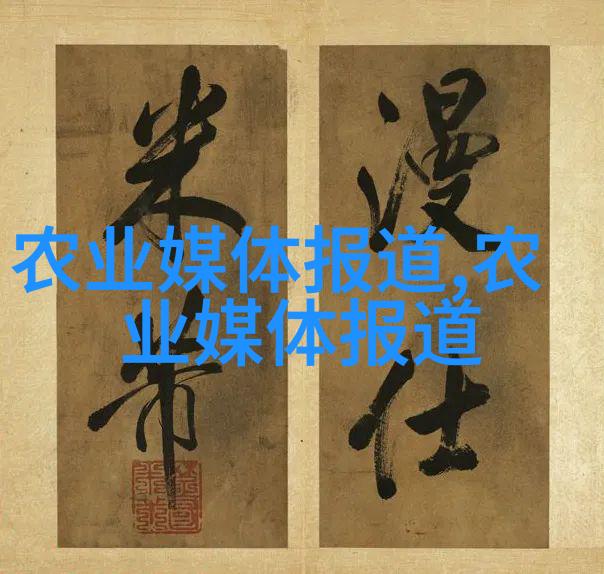 农业媒体报道,农
业媒体报道
漫仕
米芾